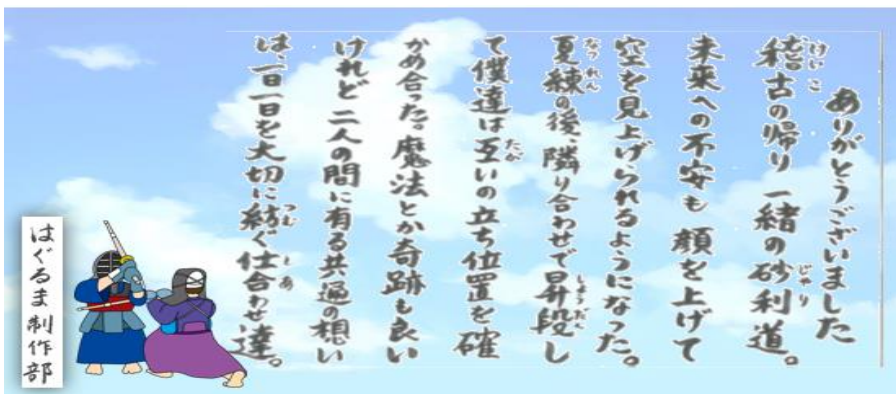 ありがとうございました
稽古の帰り 一緒の砂利道。
未来への不安も 顔を上げて
空を見上げられるようになった。
夏練の後、隣り合わせで昇段し
て僕達は互いの立ち位置を確
かめ合った。魔法とか奇跡も良い
けれど 二人の間に有る共通の想い
は、一日一日を大切に紡ぐ仕合わせ達。
はぐるま制作部